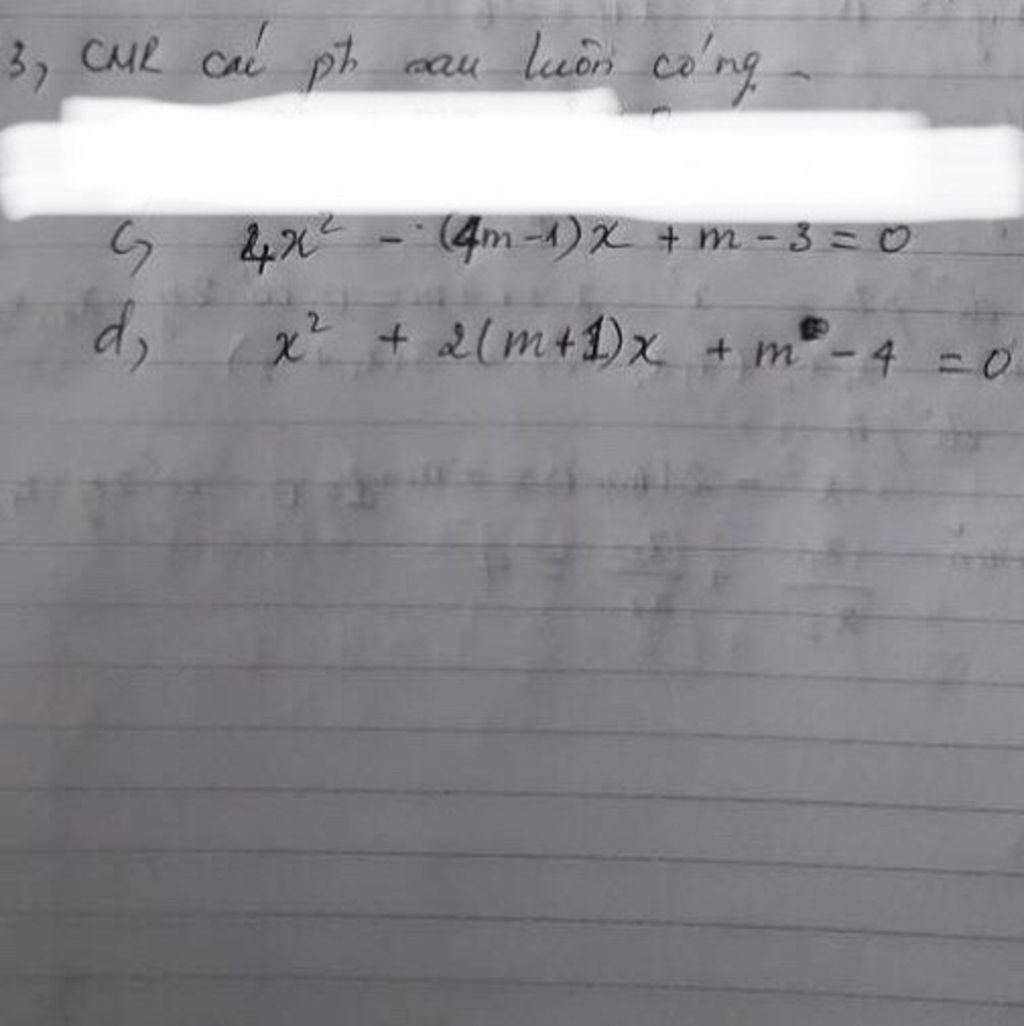 3, CMR các pt sau luôn có ng.
c, 4x² - (4m-1)x + m - 3 = 0
d, x² + 2(m+1)x + m - 4 = 0